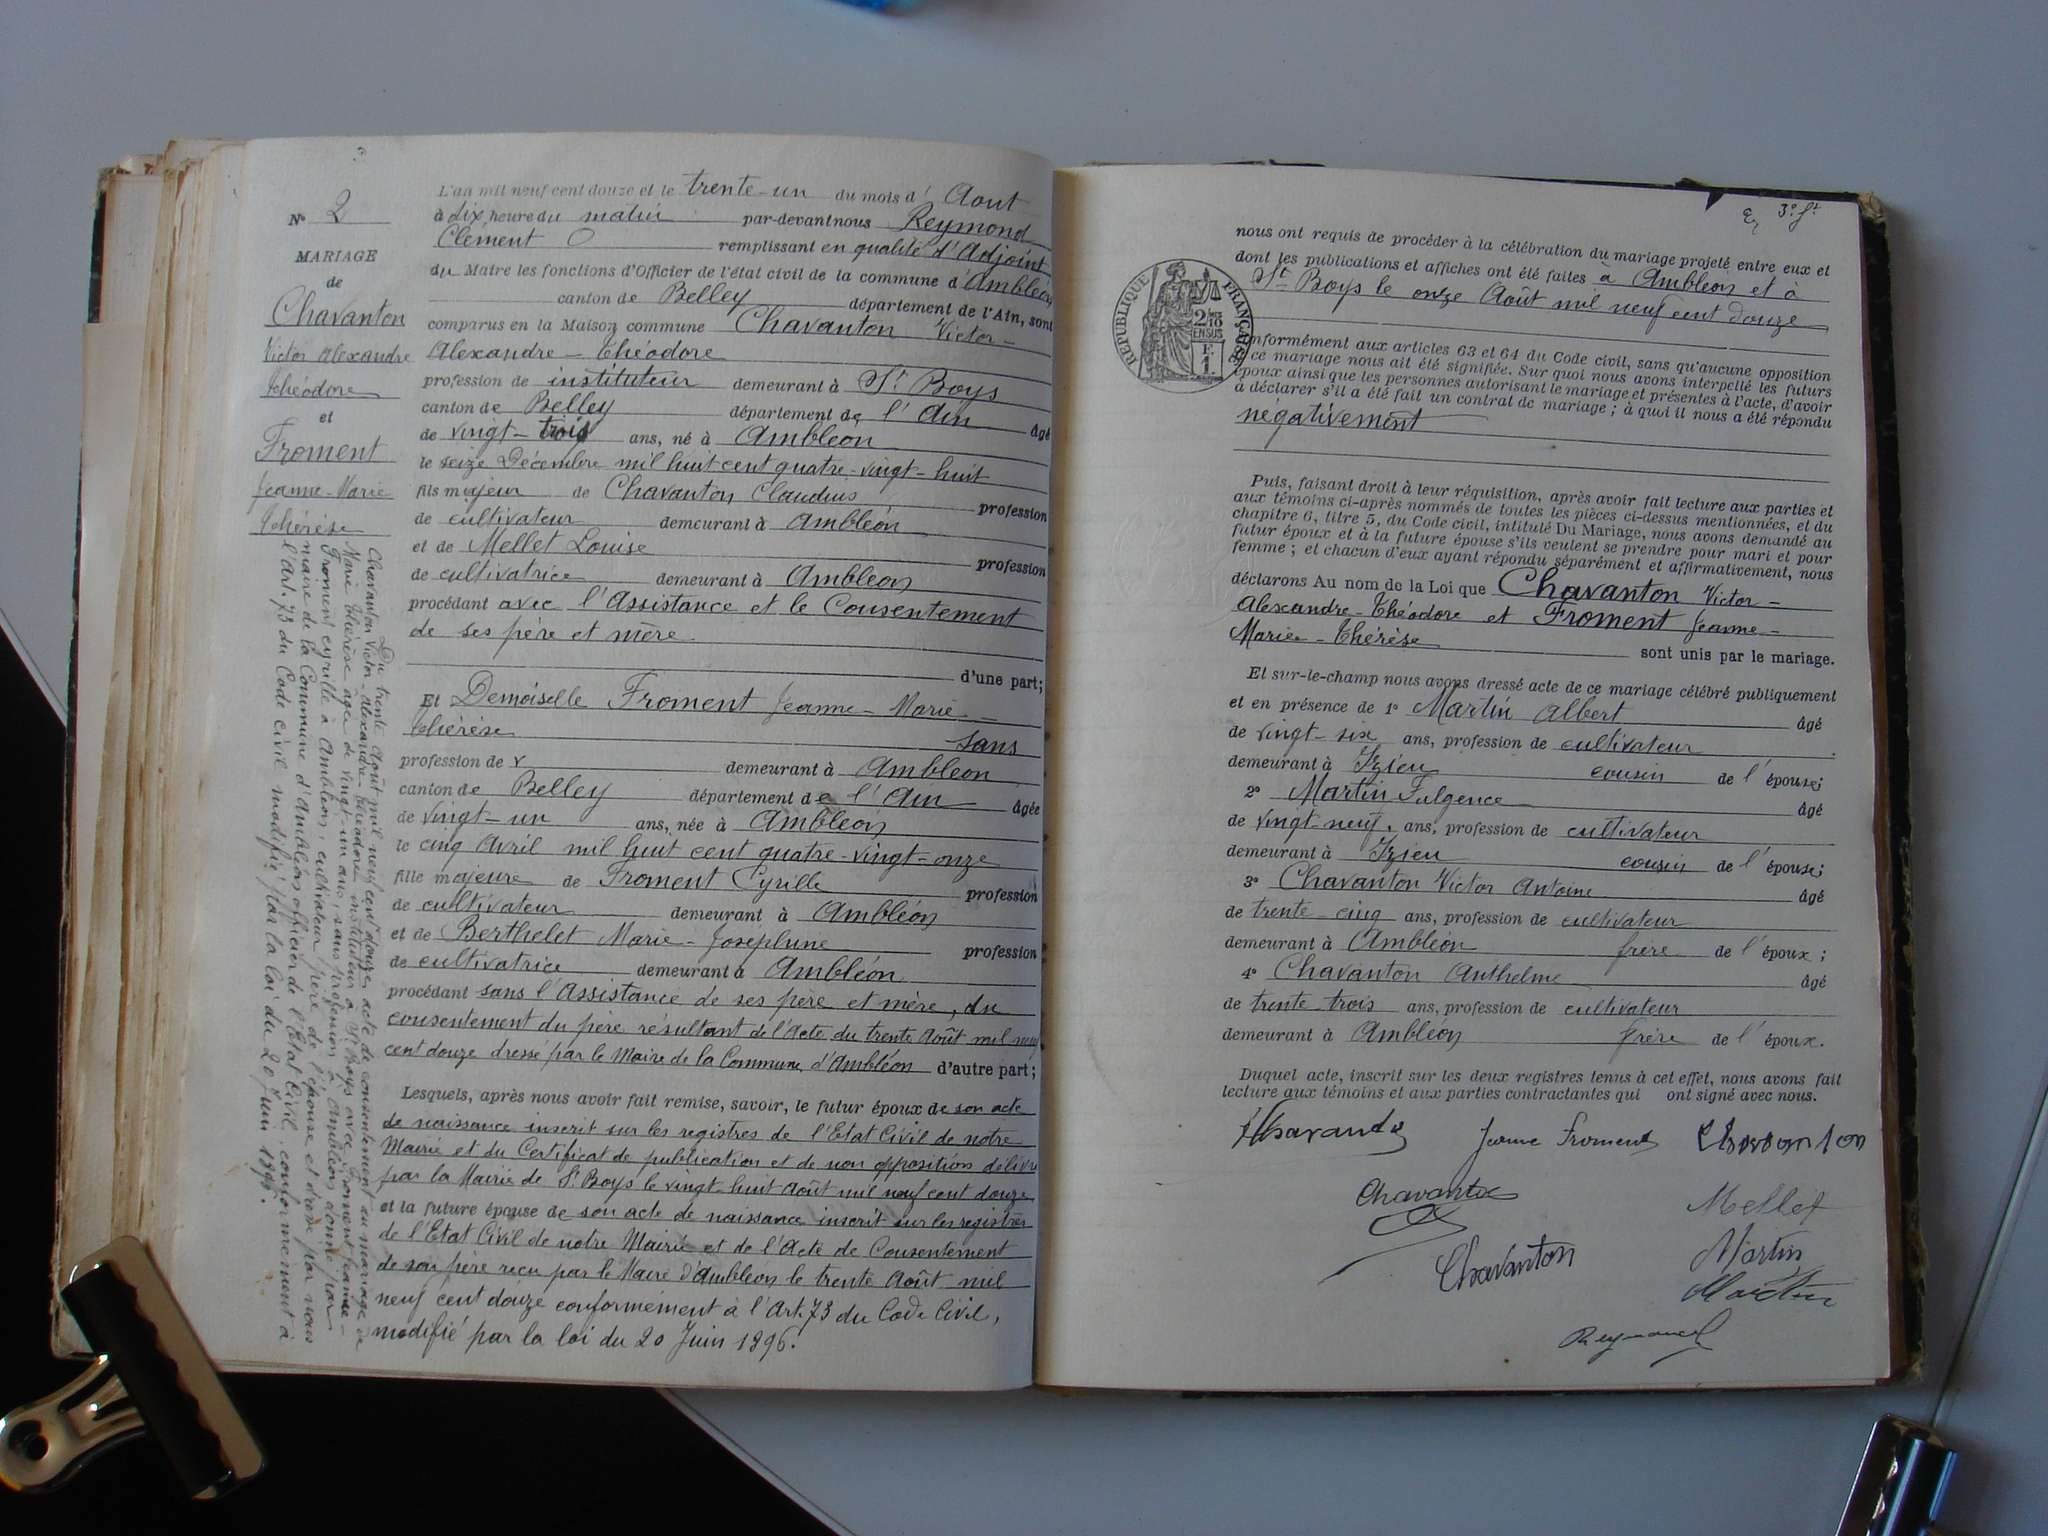 L'an mil neuf cent douze et le trente-un du mois d' Aout
N° 2
à dix heure du matin par-devant nous Reymond
Clément remplissant en qualité d'Adjoint
MARIAGE
de
du Maire les fonctions d'Officier de l'état civil de la commune d'Ambléon
canton de Belley département de l'Ain, sont
Chavanton
comparus en la Maison commune Chavanton Victor-
Victor Alexandre
Alexandre-Théodore
Théodore
profession de instituteur demeurant à St Boys
canton de Belley département de l'Ain âgé
et
de vingt-trois ans, né à Ambléon
Froment
le seize Décembre mil huit cent quatre-vingt-huit
Jeanne-Marie
fils majeur de Chavanton Claudius profession
Thérèse
de cultivateur demeurant à Ambléon
et de Mellet Louise profession
de cultivatrice demeurant à Ambléon
procédant avec l'Assistance et le Consentement
de ses père et mère
d'une part;
Et Demoiselle Froment Jeanne-Marie-
Thérèse sans
profession de demeurant à Ambléon
canton de Belley département de l'Ain âgée
de vingt-un ans, née à Ambléon
le cinq Avril mil huit cent quatre-vingt-onze
fille majeure de Froment Cyrille profession
de cultivateur demeurant à Ambléon
et de Berthelet Marie-Josephine profession
de cultivatrice demeurant à Ambléon
procédant sans l'Assistance de ses père et mère, du
consentement du père résultant de l'Acte du trente Août mil neuf
cent douze dressé par le Maire de la Commune d'Ambléon d'autre part;
Lesquels, après nous avoir fait remise, savoir, le futur époux de son acte
de naissance inscrit sur les registres de l'Etat Civil de notre
Mairie et du Certificat de publication et de non opposition délivré
par la Mairie de St Boys le vingt-huit Août mil neuf cent douze
et la future épouse de son acte de naissance inscrit sur les registres
de l'Etat Civil de notre Mairie et de l'Acte de Consentement
de son père reçu par le Maire d'Ambléon le trente Août mil
neuf cent douze conformément à l'Art. 73 du Code Civil,
modifié par la loi du 20 Juin 1896.
Du trente Août mil neuf cent douze, acte de consentement au mariage de
Chavanton Victor-Alexandre-Théodore instituteur à St Boys avec Froment Jeanne-
Marie Thérèse âgée de vingt-un ans, sans profession à Ambléon donné par
Froment Cyrille à Ambléon, cultivateur père de l'épouse et dressé par nous
maire de la Commune d'Ambléon officier de l'Etat Civil, conformément à
l'Art. 73 du Code civil modifié par la loi du 20 Juin 1896.
3e ft
RÉPUBLIQUE FRANÇAISE
2/10 EN SUS
F. 1.
nous ont requis de procéder à la célébration du mariage projeté entre eux et
dont les publications et affiches ont été faites a Ambléon et à
St Boys le onze Août mil neuf cent douze
conformément aux articles 63 et 64 du Code civil, sans qu'aucune opposition
à ce mariage nous ait été signifiée. Sur quoi nous avons interpellé les futurs
époux ainsi que les personnes autorisant le mariage et présentes à l'acte, d'avoir
à déclarer s'il a été fait un contrat de mariage; à quoi il nous a été répondu
négativement
Puis, faisant droit à leur réquisition, après avoir fait lecture aux parties et
aux témoins ci-après nommés de toutes les pièces ci-dessus mentionnées, et du
chapitre 6, titre 5, du Code civil, intitulé Du Mariage, nous avons demandé au
futur époux et à la future épouse s'ils veulent se prendre pour mari et pour
femme; et chacun d'eux ayant répondu séparément et affirmativement, nous
déclarons Au nom de la Loi que Chavanton Victor-
Alexandre-Théodore et Froment Jeanne-
Marie-Thérèse sont unis par le mariage.
Et sur-le-champ nous avons dressé acte de ce mariage célébré publiquement
et en présence de 1° Martin Albert âgé
de vingt-six ans, profession de cultivateur
demeurant à Izieu cousin de l'épouse;
2° Martin Fulgence âgé
de vingt-neuf, ans, profession de cultivateur
demeurant à Izieu cousin de l'épouse;
3° Chavanton Victor Antoine âgé
de trente-cinq ans, profession de cultivateur
demeurant à Ambléon frère de l'époux;
4° Chavanton Anthelme âgé
de trente trois ans, profession de cultivateur
demeurant à Ambléon frère de l'époux.
Duquel acte, inscrit sur les deux registres tenus à cet effet, nous avons fait
lecture aux témoins et aux parties contractantes qui ont signé avec nous.
Jeanne Froment Chavanton
Mellet
Chavanton
Martin
Martin
Reymond